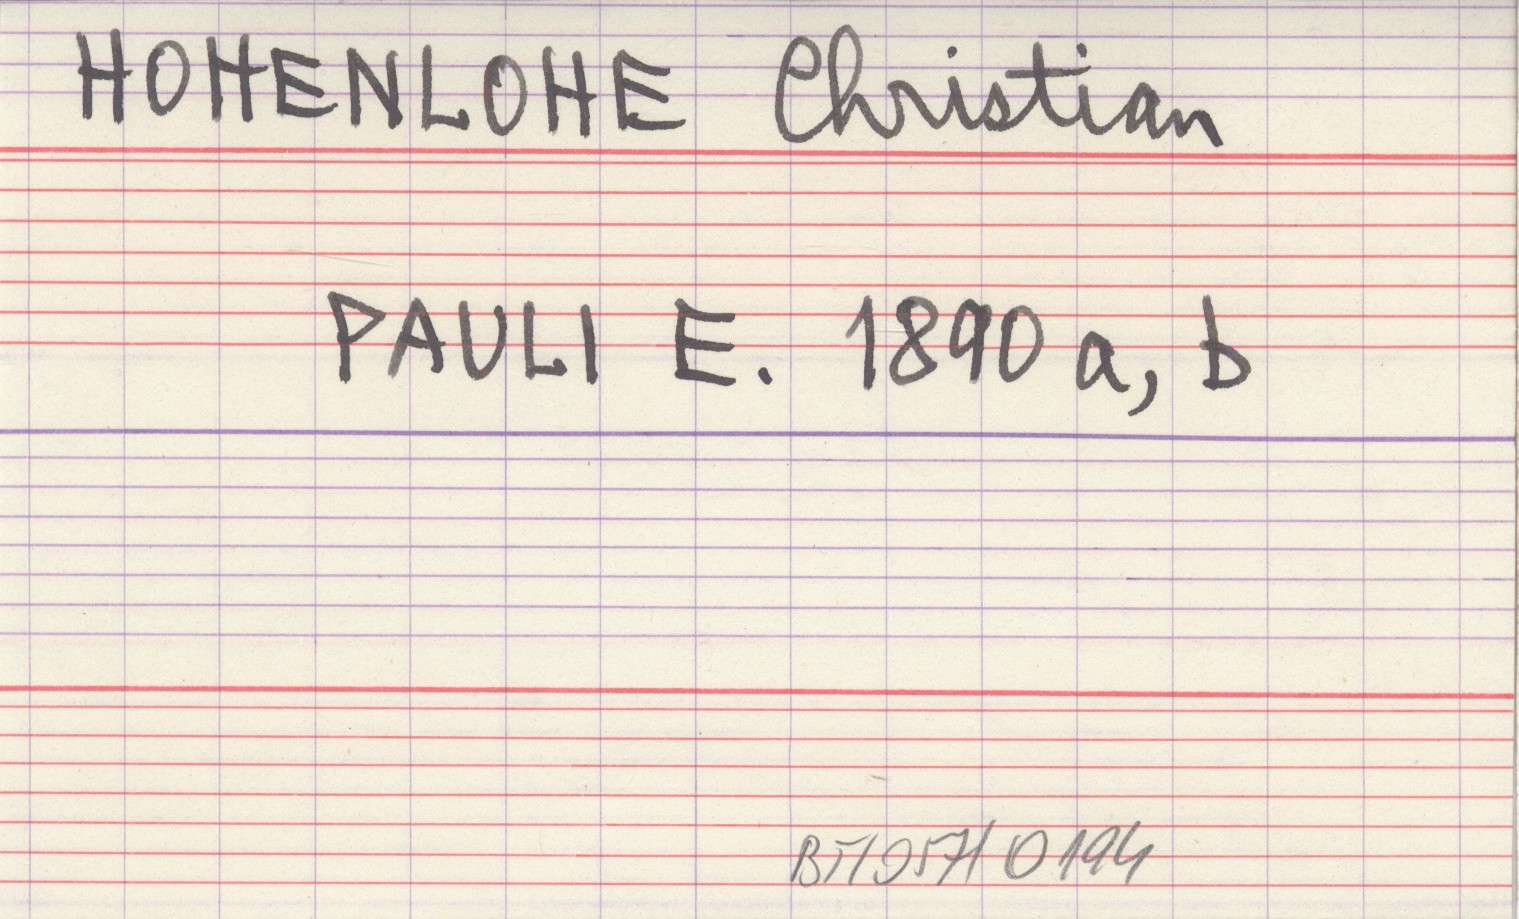 HOHENLOHE Christian
PAULI E. 1890 a, b
BT/057/0194